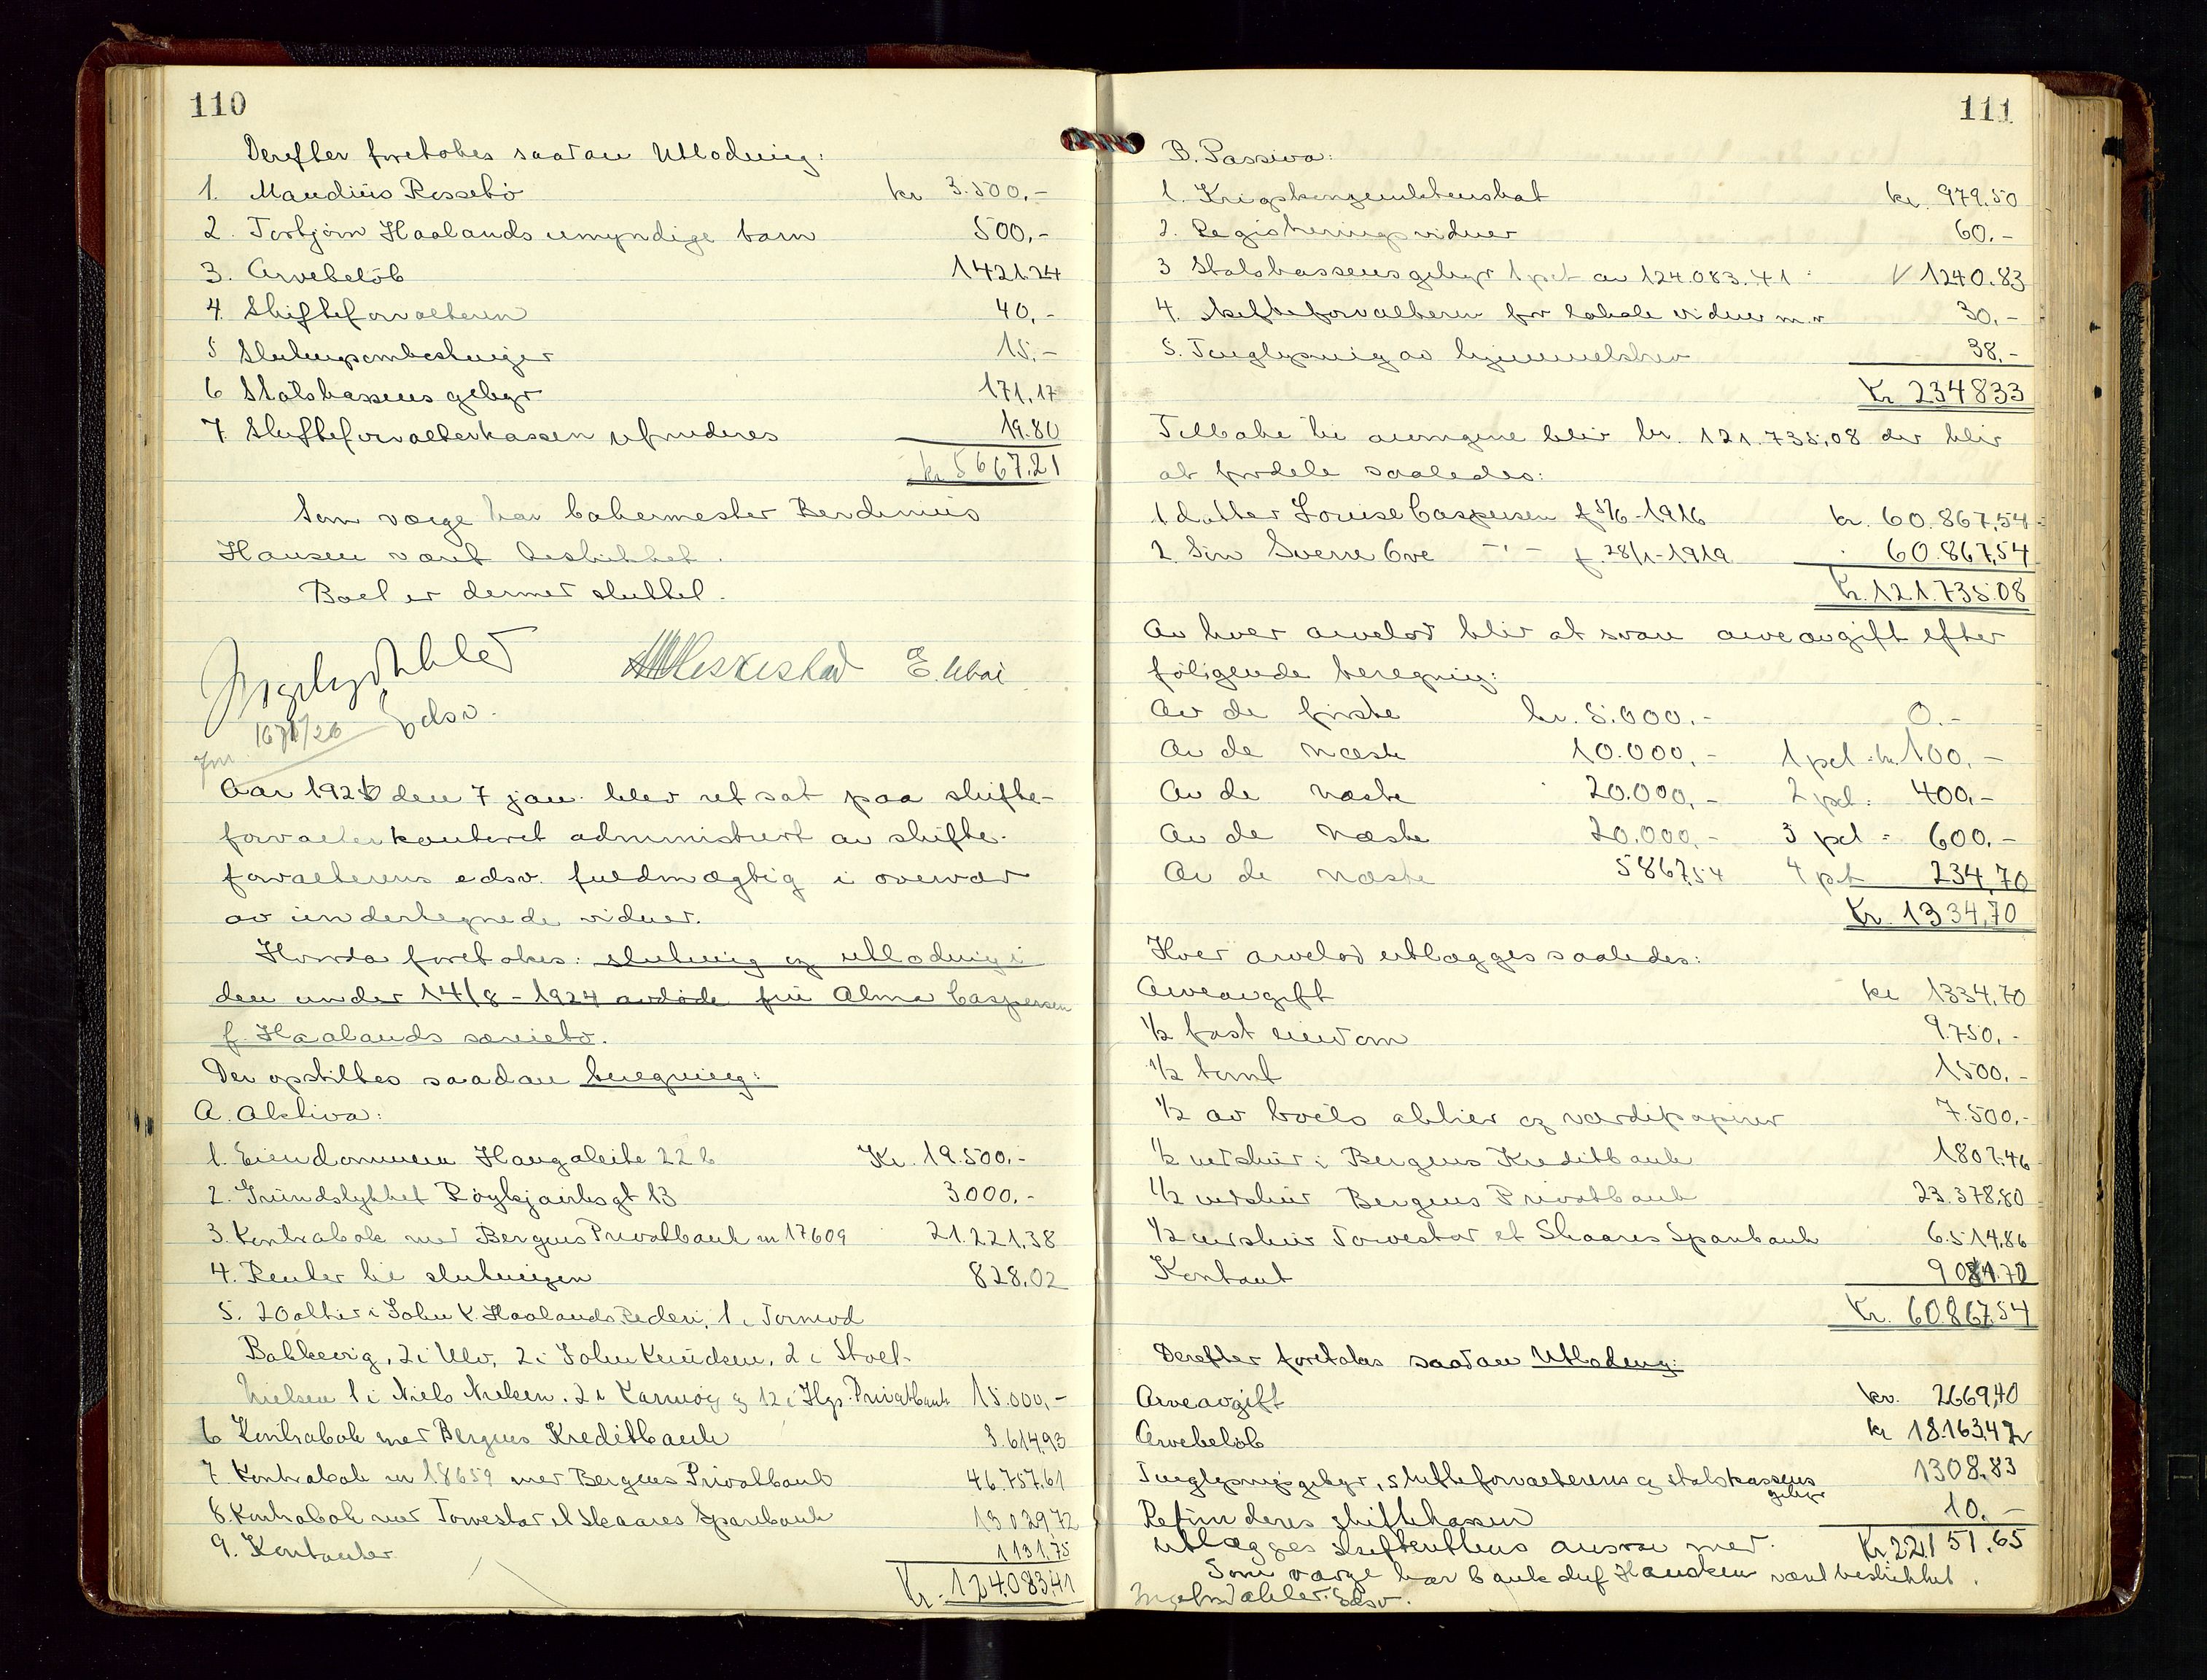 110
Derefter foretokes saadan Utlodning:
1. Maudius Rossebö kr 3.500,-
2. Torbjörn Haalands umyndige barn 500,-
3. Arvebelöb 1421.24
4. Skifteforvalteren 40,-
5 15,-
6 Statskassens gebyr 171,17
7. Skifteforvalterkassen refunderes 19.80
kr 5667.21
Som værge har bakermester Berdinius
Hansen vært beskikket.
Boet er dermed sluttet.
E. Wai
edsv.
Aar 1926 den 7 jan. blev ret sat paa skifte-
forvalterkontoret administrert av skifte-
forvalterens edsv. fuldmægtig i overvær
av undertegnede vidner.
Hvorda foretokes: slutning og utlodning i
den under 14/8 - 1924 avdöde fru Alma Caspersen
f. Haalands særiebo.
Der opstilles saadan beregning:
A. Aktiva:
1. Eiendommen Haugaleite 22 b Kr. 19.500.-
2. Grundstykket Röykjairks gt 13 3000.-
3. Kontrabok med Bergens Privatbank nr 17609 21.221,38
4. Renter til slutningen 828,02
5. 20 aktier i John K. Haalands Rederi, 1 i Tormod
Bakkevig, 2 i Ulv, 2 i John Knudsen, 2 i Stolt-
Nielsen 1 i Niels Nielsen. 2 i Karmöy og 12 i Hgs. Privatbank 15.000,-
6 Kontrabok med Bergens Kreditbank 3.614,93
7. Kontrabok nr 18659 med Bergens Privatbank 46.757,61
8. Kontrabok med Torvestad et Skaares Sparebank 13.029,72
9. Kontanter 1131,75
Kr. 124.083,41
111
B. Passiva:
1. Krigskonjunkturskat kr. 979,50
2. Registreringsvidner 60.-
3 Statskassens gebyr 1 pct av 124.083.41 : 1240.83
4. skifteforvalteren for lokale vidner m.v 30,-
5. Tinglysning av hjemmelsbrev 38,-
Kr 2348 33
Tilbake til arvingene blir kr. 121.735,08 der blir
at fordele saaledes:
1 datter Louise Caspersen f 5/6-1916 kr. 60.867,54
2. Sön Sverre Ove -"- f. 28/1-1919 60.867,54
Kr. 121.735.08
Av hver arvelod blir at svare arveavgift efter
föligende beregning:
Av de förste kr. 5.000.- 0.-
Av de næste 10.000,- 1 pct: kr. 100,-
Av de næste 20.000,- 2 pct: 400,-
Av de næste 20.000,- 3 pct = 600.-
Av de næste 5867,54 4 pct 234,70
Kr. 1334,70
Hver arvelod utlægges saaledes:
Arveavgift kr 1334,70
1/2 fast eiendom 9.750,-
1/2 tomt 1500,-
1/2 av boets aktier og værdipapirer 7.500,-
1/2 indskud i Bergens Kreditbank 1807,46
1/2 indskud Bergens Privatbank 23.378,80
1/2 indskud Torvestad et Skaares Sparebank 6.514,86
Kontant 9081.72
Kr. 60867,54
Derefter foretokes saadan Utlodning:
Arveavgift kr. 2669,40
Arvebelöb kr 18.163,42
Tinglysningsgebyr, skifteforvalterens og statskassens gebyr 1308,83
Refunderes skiftekassen 10.-
Kr. 22151.65
Som værge har bankchef Hausken vært beskikket.
edsv.